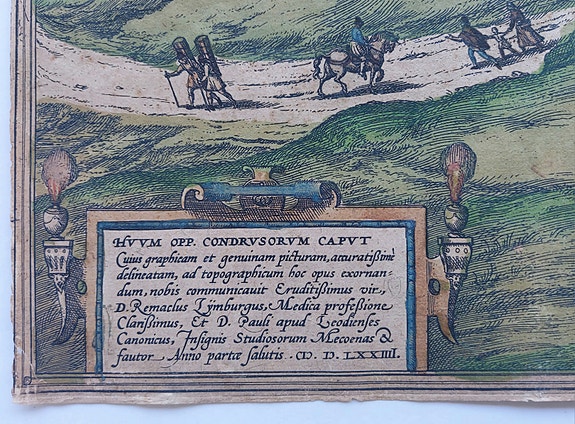 HVVM OPP. CONDRVSORVM CAPVT
Cuius graphicam et genuinam picturam, accuratißime
delineatam, ad topographicum hoc opus exornan-
dum, nobis communicauit Eruditißimus vir,
D. Remaclus Lÿmburgus, Medica profeßione
Clarißimus, Et D. Pauli apud Leodienses
Canonicus, Insignis Studiosorum Mecoenas &
fautor Anno partæ salutis. CIƆ. D. LXXIIII.